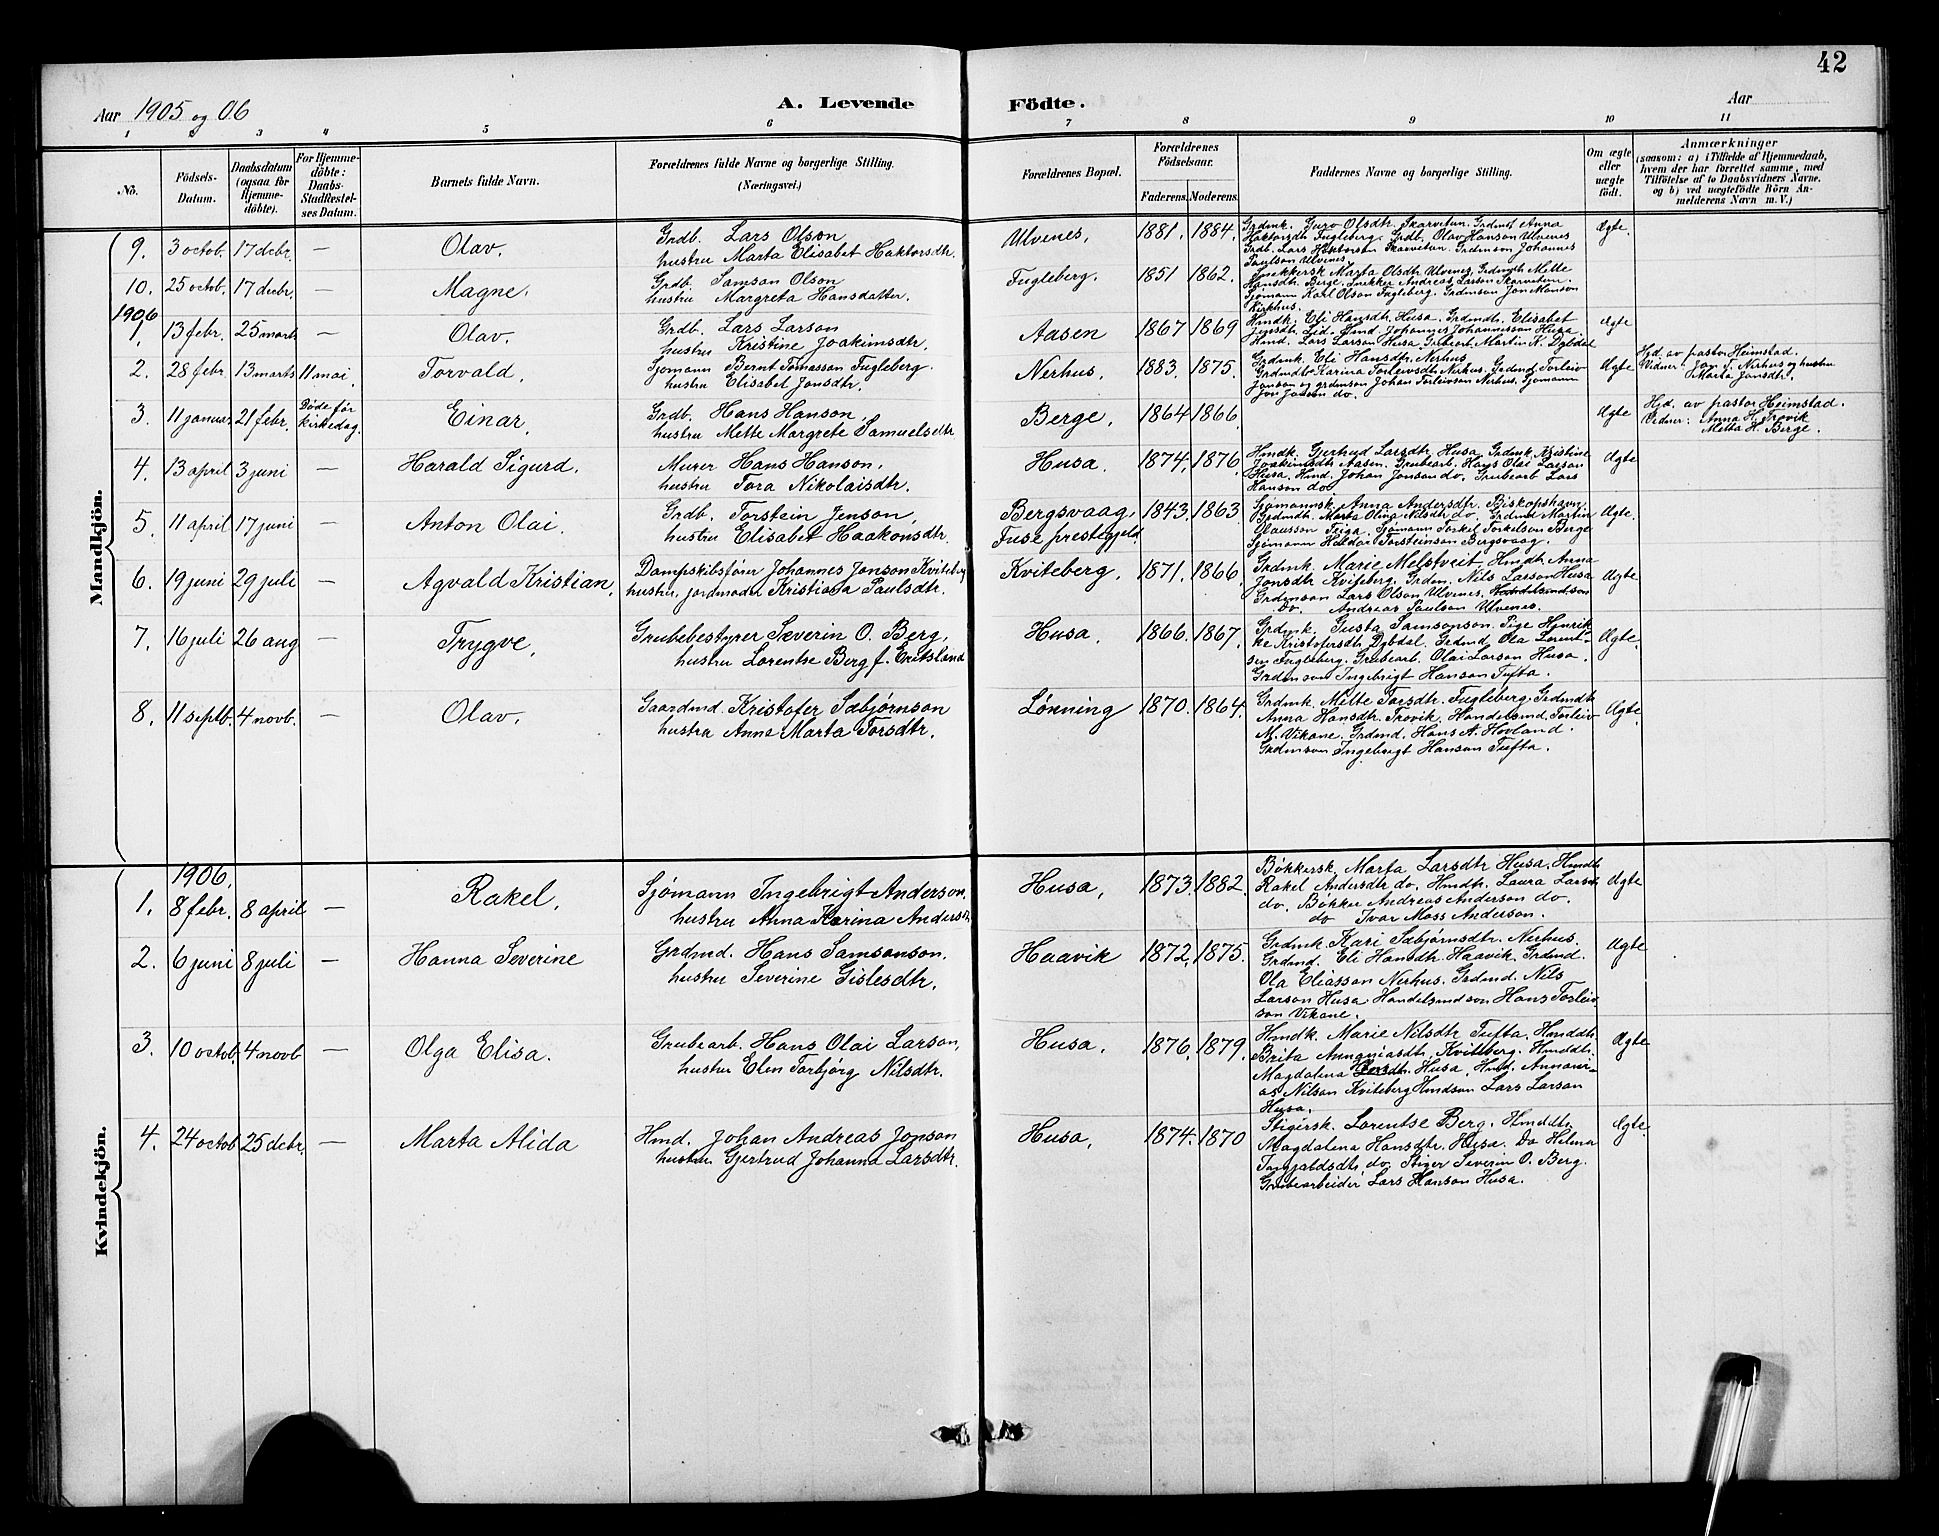 42
Aar 1905 og 06
A. Levende Födte.
Aar
1 2 3 4 5 6 7 8 9 10 11
No.
Födsels-
Datum.
Daabsdatum
(ogsaa for
Hjemme-
döbte).
For Hjemme-
döbte:
Daabs-
Stadfæstel-
ses Datum.
Barnets fulde Navn.
Forældrenes fulde Navne og borgerlige Stilling.
(Næringsvei.)
Forældrenes Bopæl.
Forældrenes
Födselsaar.
Faderens. Moderens.
Faddernes Navne og borgerlige Stilling.
Om ægte
eller
uægte
födt.
Anmærkninger
(saasom: a) i Tilfælde af Hjemmedaab,
hvem der har forrettet samme, med
Tilföielse af to Daabsvidners Navne.
og b) ved uægtefödte Börn An-
melderens Navn m. V.)
Mandkjön.
9. 3 octob. 17 decbr. — Olav.
Grdb. Lars Olson
hustru Marta Elisabet Haktorsdtr.
Ulvenes, 1881. 1884.
Grdmk. Guro Olsdtr. Skarvetun. Grdmdt Anna
Haktorsdtr Fugleberg. Grdb. Olav Hanson Ulvenes
Grdb. Lars Haktorson Skarvetun. Grdmson Johannes
Paulson Ulvenes.
Ægte.
10. 25 octob. 17 decbr. — Magne.
Grdb. Samson Olson
hustru Margreta Hansdatter.
Fugleberg. 1851 1862.
Snekkersk Marta Olsdtr. Ulvenes, Grdmdt Mette
Hansdtr. Berge. Snekker Andreas Larson Skarvetun.
Sjømann Karl Olson Fugleberg. Grdmson Jon Monson
Kirkhus.
1906
1. 13 febr. 25 marts — Olav.
Grdb. Lars Larson
hustru Kristine Joakimsdtr.
Aasen 1867 1869
Hmdk. Eli Hansdtr. Husa. Grdmdt. Elisabet
Jensdtr. Lid. Hmd. Johannes Johannesson Husa.
Hmd. Lars Larson Husa, Grubearb. Martin K. Dybdal
Ægte
2. 28 febr. 13 marts 11 mai. Torvald.
Sjømann Bernt Tomasson Fugleberg.
hustru Elisabet Jonsdtr.
Nerhus. 1883. 1875.
Grdmk. Eli Hansdtr. Nerhus
Grdmdt Karina Torleivsdtr Nerhus. Grdmd. Torleiv
Jonson og grdmson Johan Torleivson Nerhus, Sjømann
Jon Jonson do.
Ægte
Hjd. av pastor Heimstad.
Vidner: Jon T. Nerhus og hustru
Marta Jonsdtr.
3. 11 januar 21 febr. Døde før
kirkedag. Einar.
Grdb. Hans Hanson,
hustru Mette Margrete Samuelsdtr
Berge. 1864 1866.
Ægte
Hjd. av pastor Heimstad.
Vidner: Anna H. Trovik
Metta H. Berge.
4. 13 april 3 juni — Harald Sigurd.
Murer Hans Hanson,
hustru Tora Nikolaisdtr.
Husa. 1874. 1876.
Hmdk. Gjertrud Larsdtr, Husa, Grdmk. Kristine
Joakimsdtr Aasen. Grubearb. Hans Olai Larson
Husa. Hmd. Johan Jonson do. Grubearb Lars
Hanson do
Ægte
5. 11 april 17 juni — Anton Olai.
Grdb. Torstein Jenson,
hustru Elisabet Haakonsdtr.
Bergsvaag,
Fuse prestegjeld. 1843. 1863
Sjømannsk. Anna Andersdtr. Biskopshavn
Grdmdtr. Marta Olina Nilsdtr do. Grdmd Martin
Olausson Teiga. Sjømann Torkel Torkelson Berge
Sjømann Haldor Torsteinson Bergsvaag.
Ægte.
6. 19 juni 29 juli — Agvald Kristian,
Dampskibsfører Johannes Jonson Kviteberg
hustru, jordmoder Kristiana Paulsdtr.
Kviteberg. 1871. 1866.
Grdmk. Marie Melstveit. Hmdtr. Anna
Jonsdtr Kviteberg. Grdm. Nils Larson Husa
Grdmson Lars Olson Ulvenes. Handelsmdson
do. Andreas Paulson Ulvenes.
Ægte
7. 16 juli 26 aug — Trygve,
Grubebestyrer Severin O. Berg,
hustru Lorentse Berg f. Eritsland
Husa. 1866. 1867.
Grdmk. Gusta Samsonson. Pige Henrik-
ke Kristofersdtr. Dybdal. Grdmd. Ola Lorent-
sen Fugleberg. Grubearb. Olai Larson Husa.
Grdmson Ingebrigt Hanson Tufta.
Ægte.
8. 11 septb. 4 novb. — Olav.
Gaardmd. Kristofer Sæbjørnson
hustru Anna Marta Torsdtr.
Lønning 1870. 1864.
Grdmk. Mette Torsdtr. Fugleberg. Grdmdtr
Anna Hansdtr. Trovik. Handelsmd. Torleiv
M. Vikane. Grdmd. Hans A. Hovland.
Grdmson Ingebrigt Hanson Tufta.
Ægte.
Kvindekjön.
1906.
1. 8 febr. 8 april — Rakel.
Sjømann Ingebrigt Anderson,
hustru Anna Karina Andersdtr
Husa, 1873. 1882.
Bøkkersk. Marta Larsdtr Husa. Hmdtr
Rakel Andersdtr do. Hmdtr. Laura Larsdtr
do. Bøkker Andreas Anderson do.
do Ivar Moss Anderson.
Ægte
2. 6 juni 8 juli — Hanna Severine
Grdmd. Hans Samsonson.
hustru Severine Gislesdtr.
Haavik 1872. 1875.
Grdmk. Kari Sæbjørnsdtr. Nerhus.
Grdmd. Eli Hansdtr. Haavik. Grdmd.
Ola Eliasson Nerhus. Grdmd. Nils
Larson Husa. Handelsmdson Hans Torleiv-
son Vikane.
Ægte
3. 10 octob. 4 novb — Olga Elisa.
Grubearb. Hans Olai Larson,
hustru Elen Torbjørg Nilsdtr.
Husa. 1876. 1879.
Hmdk. Marie Nilsdtr Tufta. Hmddtr.
Brita Annaniasdtr. Kviteberg. Hmddtr.
Magdalena Hansdtr. Husa. Hmd. Annani-
as Nilson Kviteberg Hmdson Lars Larson
Husa.
Ægte
4. 24 octob 25 decbr. — Marta Alida
Hmd. Johan Andreas Jonson
hustru Gjertrud Johanna Larsdtr.
Husa, 1874. 1870
Stigersk. Lorentse Berg. Hmddtr.
Magdalena Hansdtr. Husa. Do Helena
Ingjaldsdtr, do. Stiger Severin O. Berg.
Grubearbeider Lars Hanson Husa.
Ægte.